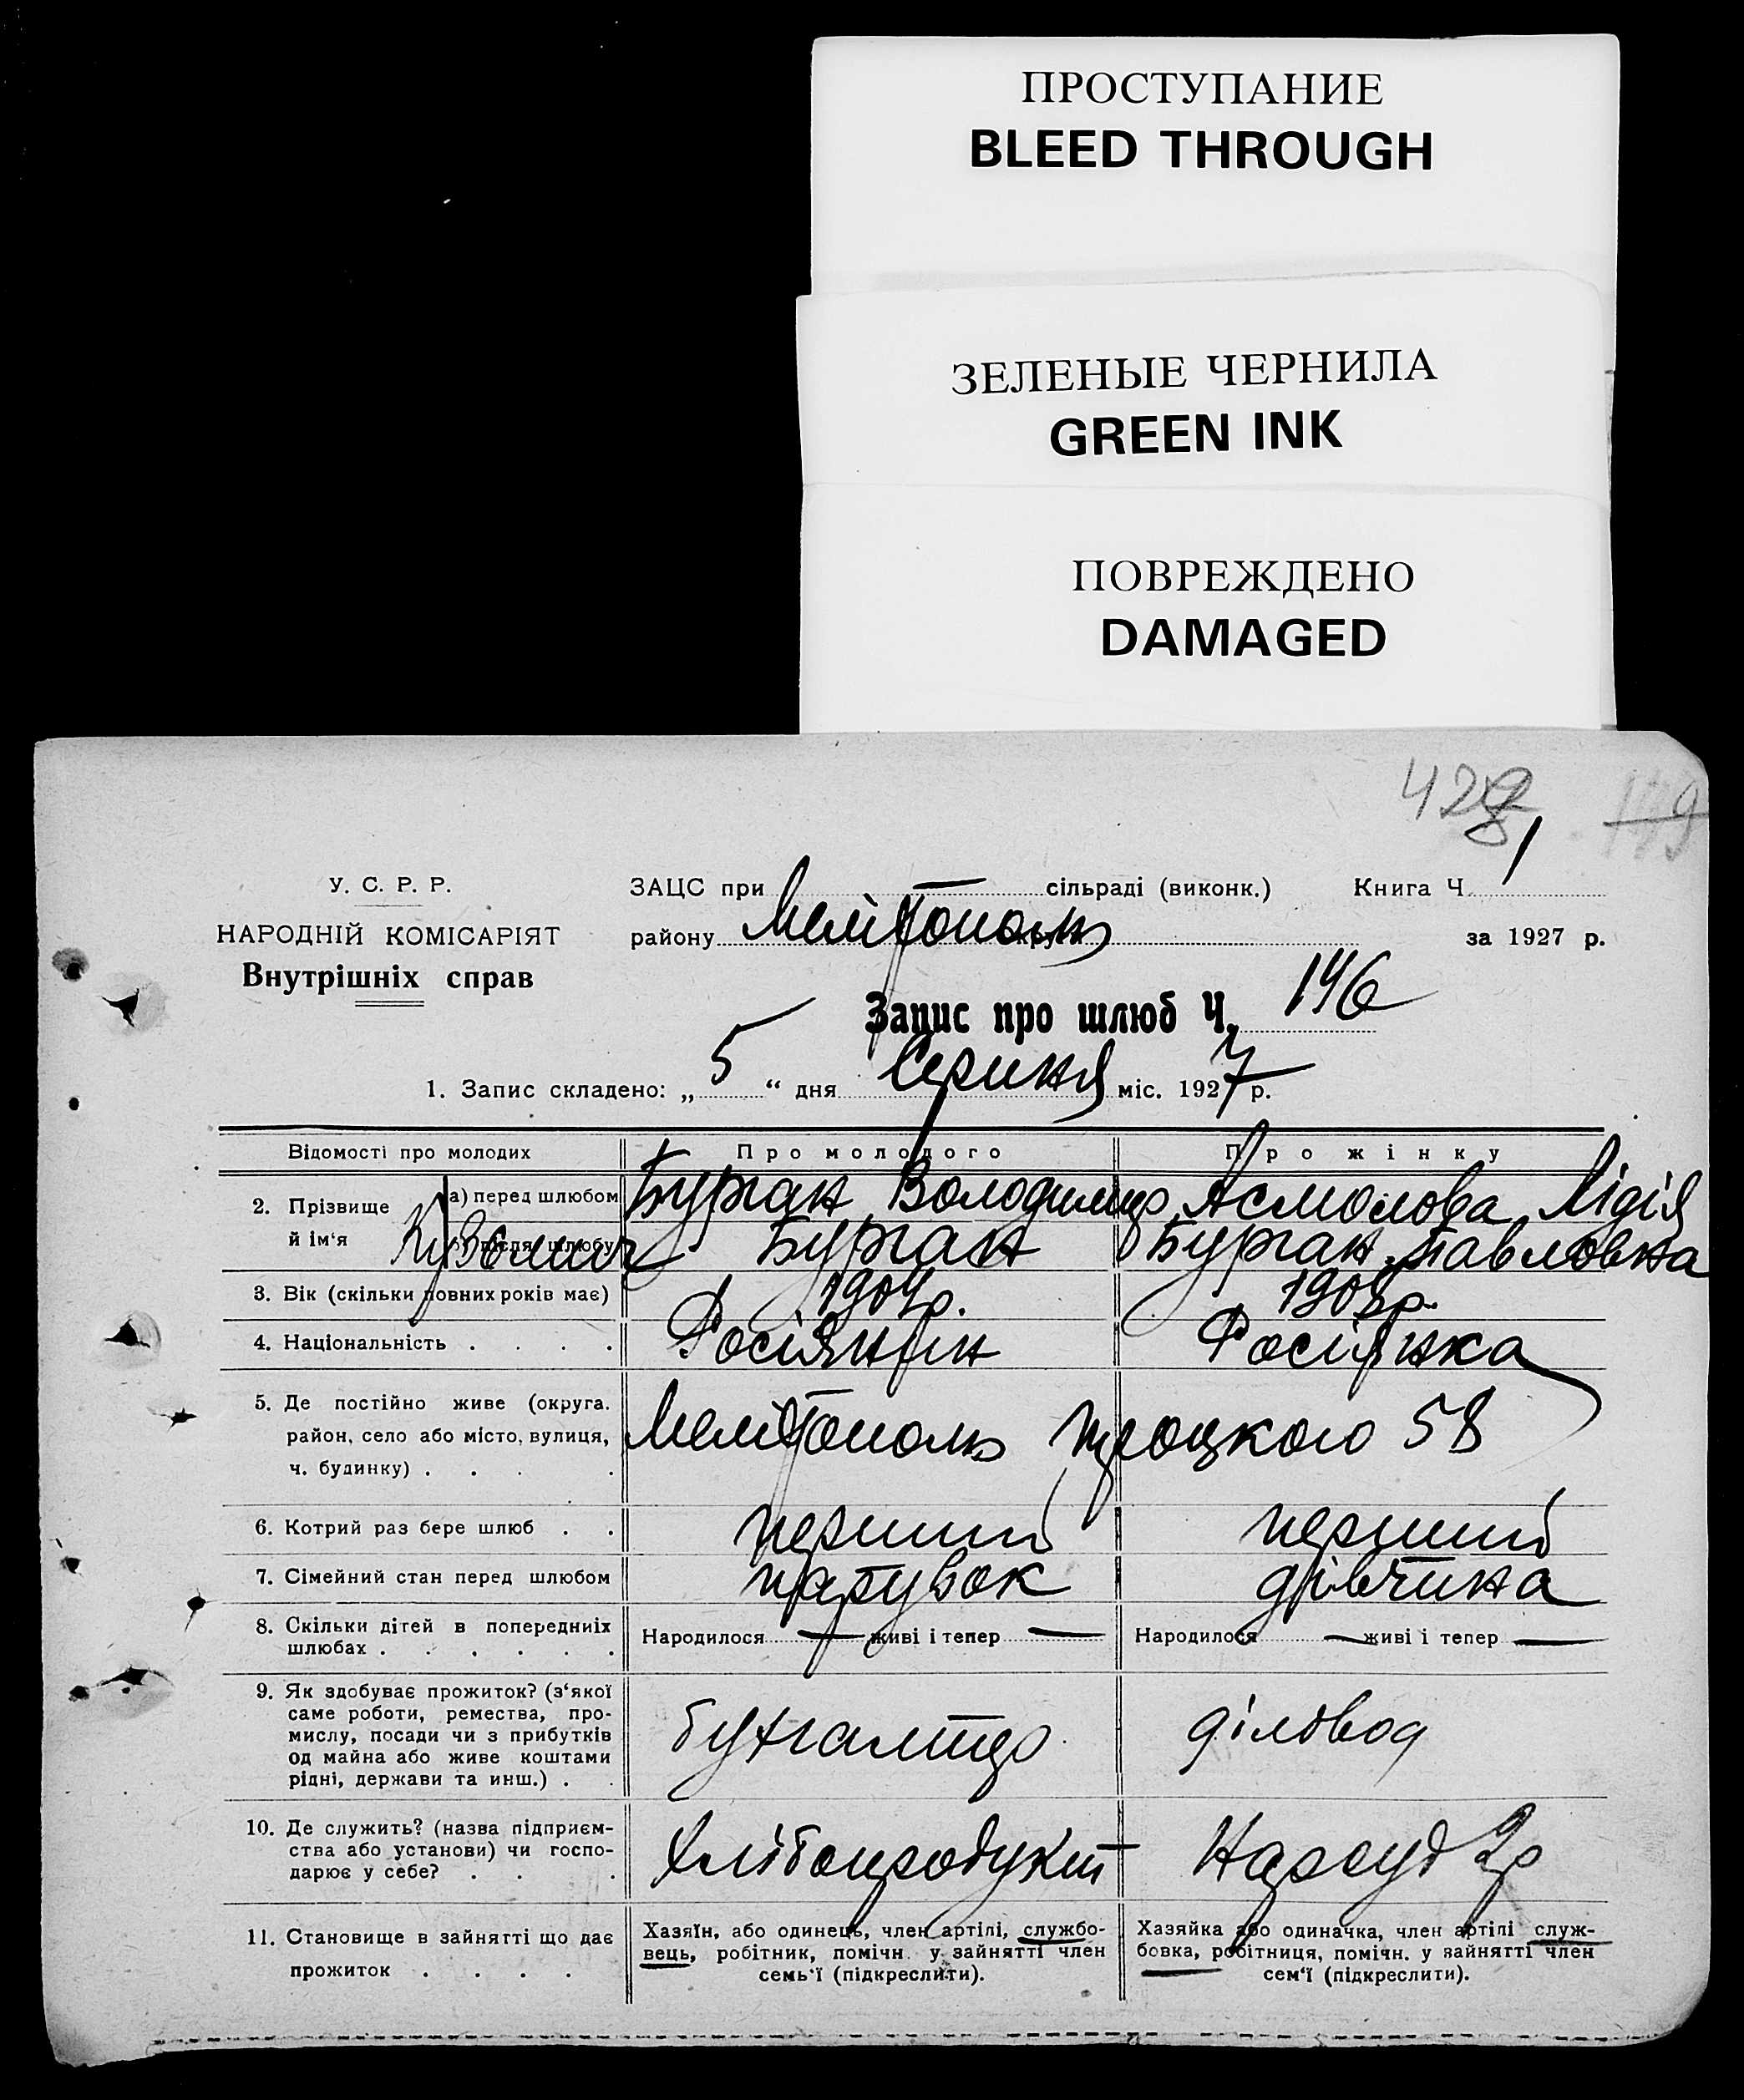 ПРОСТУПАНИЕ
BLEED THROUGH
ЗЕЛЕНЫЕ ЧЕРНИЛА
GREEN INK
ПОВРЕЖДЕНО
DAMAGED
428
У. С. Р. Р.
НАРОДНІЙ КОМІСАРІЯТ
Внутрішніх справ
ЗАЦС при — сільраді (виконк.) Книга Ч. 1
району Мелітополь за 1927 р.
Запис про шлюб Ч. 146
1. Запис складено: „ 5 “ дня Серпня міс. 1927 р.
Відомості про молодих Про молодого Про жінку
2. Прізвище й ім'я а) перед шлюбом Бурган Володимир Асмолова Лідія
після шлюбу Кузьмич Бурган Бурган Павловна
3. Вік (скільки повних років має) 1904р. 190 р.
4. Національність . . . . Росіянин Росіянка
5. Де постійно живе (округа.
район, село або місто, вулиця,
ч. будинку) . . . . Мелітополь Троцкого 58
6. Котрий раз бере шлюб . . перший перший
7. Сімейний стан перед шлюбом парубок дівчина
8. Скільки дітей в попередніх
шлюбах . . . . . . Народилося — живі і тепер — Народилося — живі і тепер —
9. Як здобуває прожиток? (з'якої
саме роботи, ремества, про-
мислу, посади чи з прибутків
од майна або живе коштами
рідні, держави та инш.) . . бухгалтер діловод
10. Де служить? (назва підприєм-
ства або установи) чи госпо-
дарює у себе? . . . Хлібопродукт Нарсуд 2р
11. Становище в зайнятті що дає
прожиток . . . .
Хазяїн, або одинець, член артілі, службо-
вець, робітник, помічн. у зайнятті член
семь'ї (підкреслити).
Хазяйка або одиначка, член артілі служ-
бовка, робітниця, помічн. у зайнятті член
сем'ї (підкреслити).